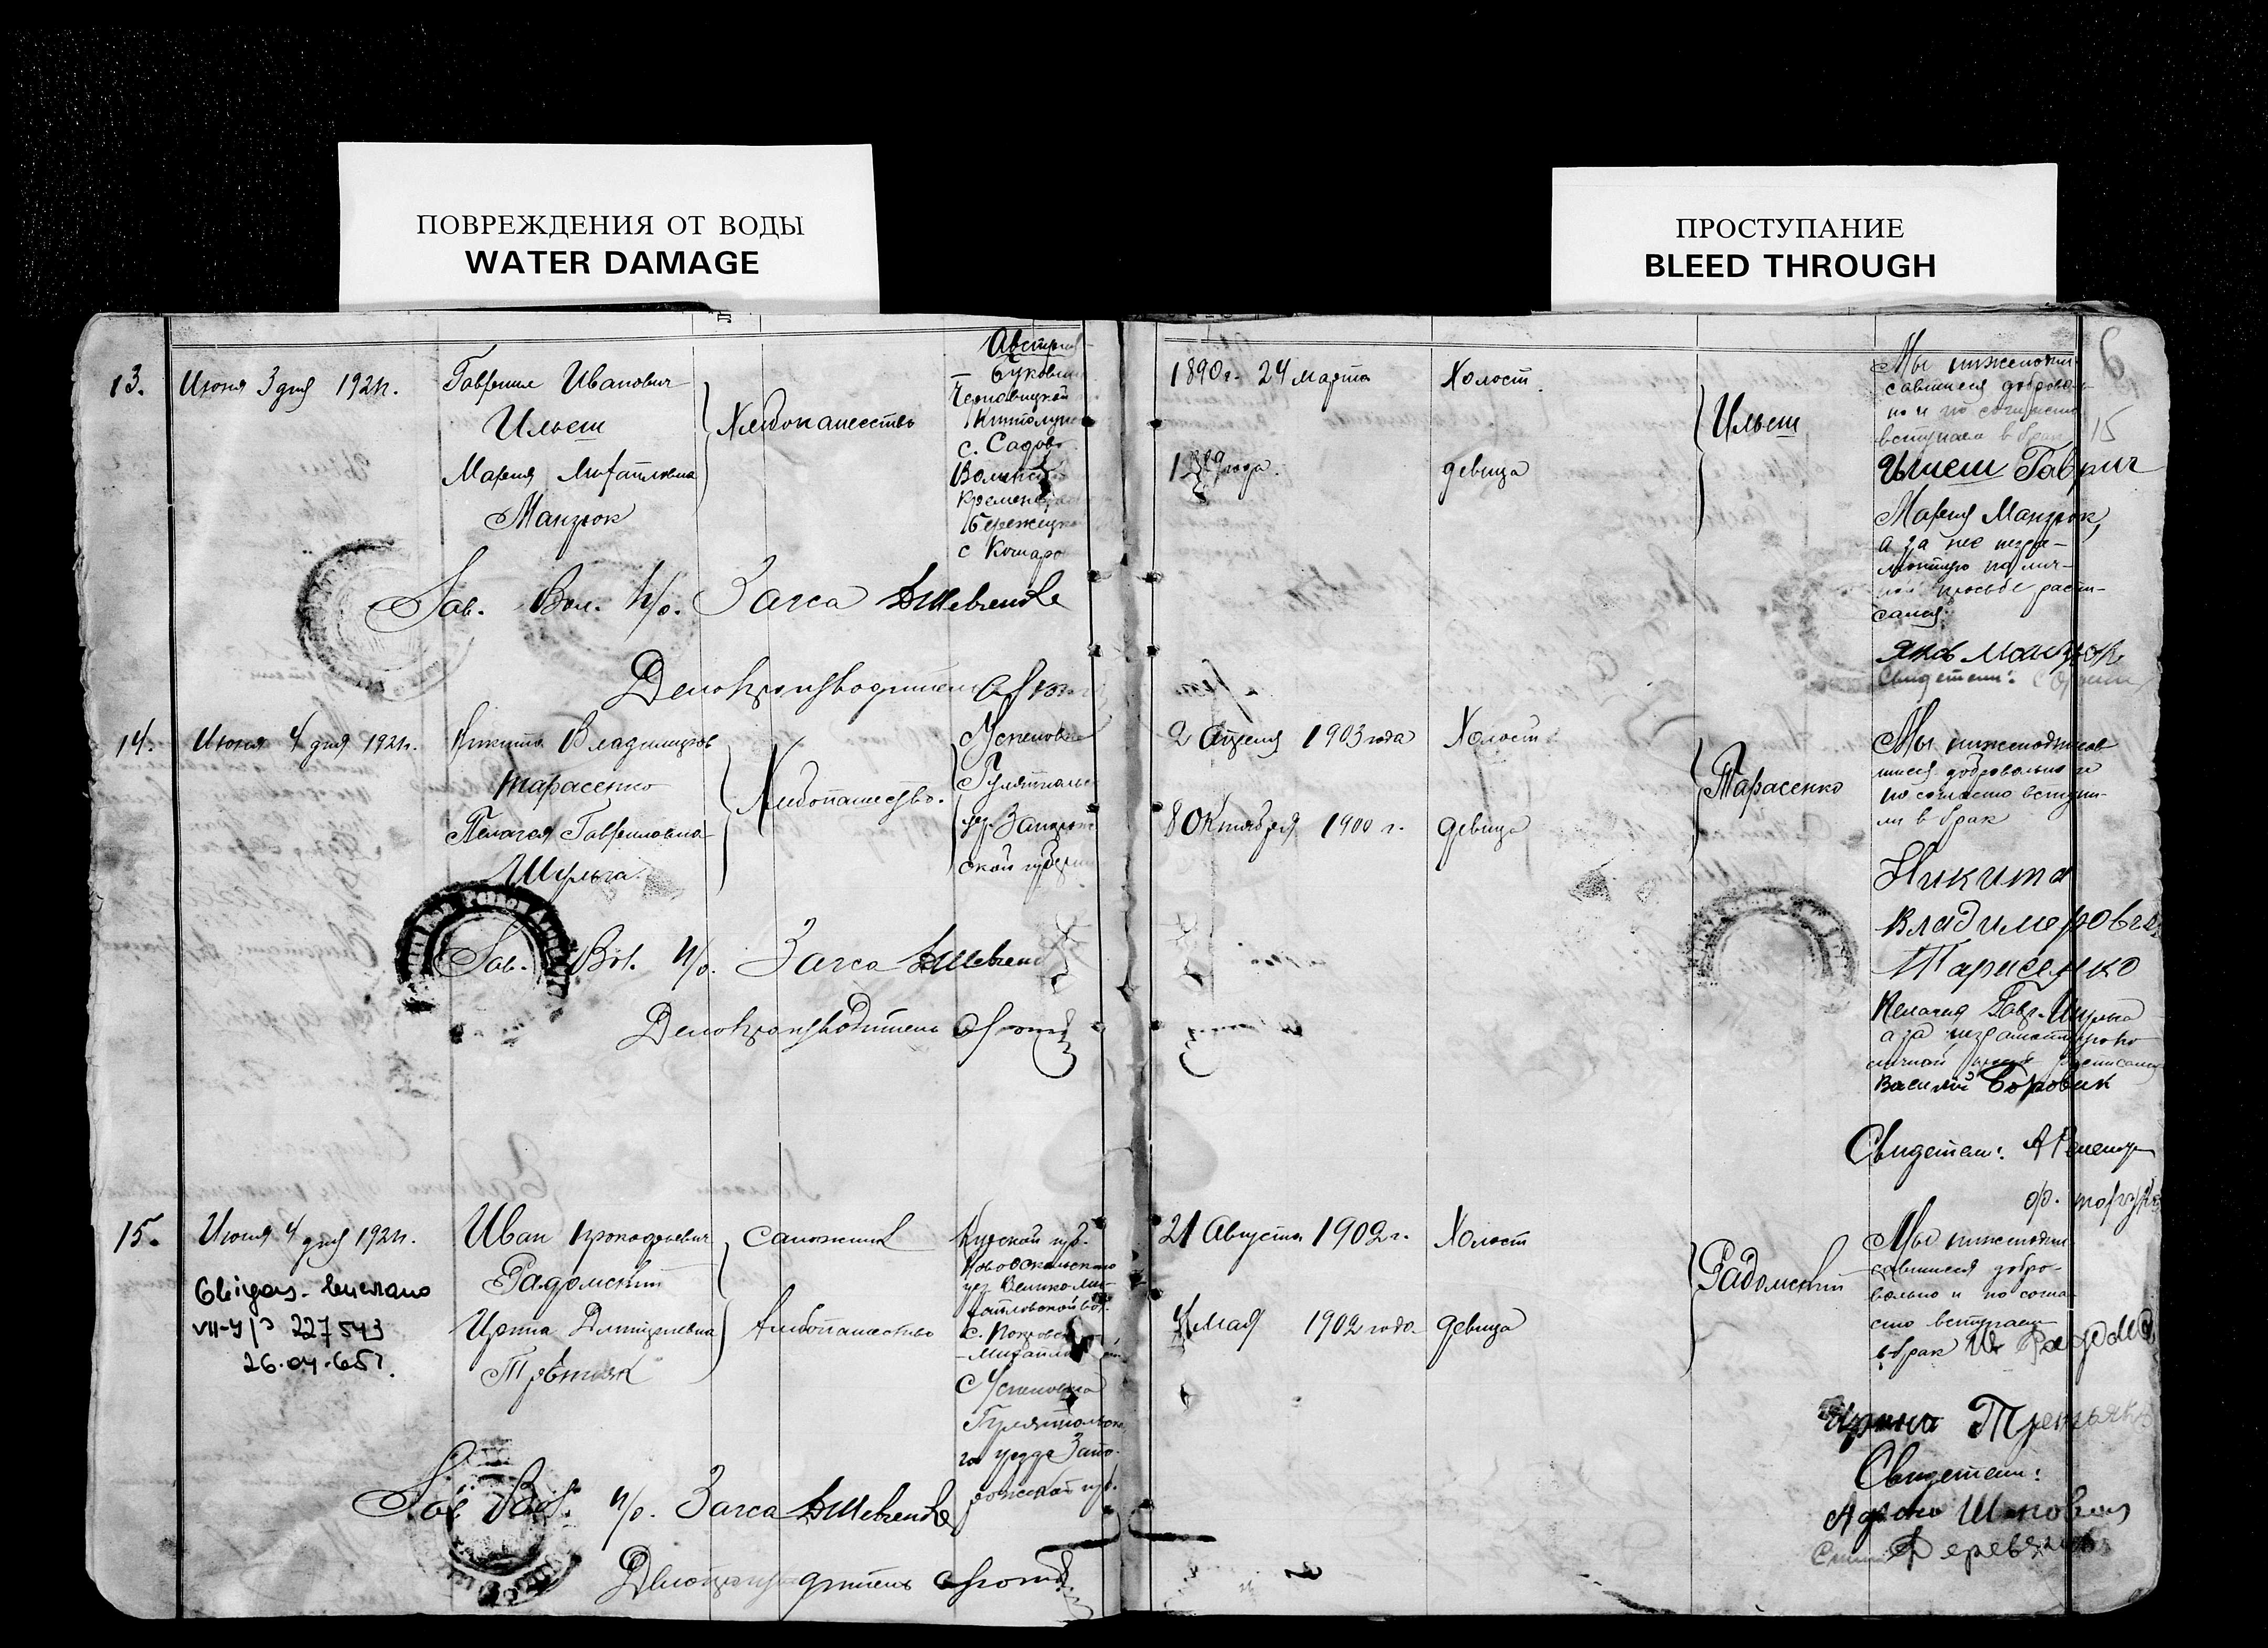 ПОВРЕЖДЕНИЯ ОТ ВОДЫ
WATER DAMAGE
ПРОСТУПАНИЕ
BLEED THROUGH
6
15
13.
Июня 3 дня 192
Гавриил Иванович
Ильеш
Мария Михайловна
Манзюк
Хлебопашество
Австрия
Буковин
Черновицкой
с. Садов
Волинск
Кременец
Бережецк
с Комаро
1890 г. 24 Марта
года.
Холост.
девица
Ильеш
Мы нижеподпи-
савшиеся доброволь
но и по согласию
вступаем в брак
Ильеш Гаврил
Мария Манзюк,
а за нее негра-
мотную по лич-
ной просьбе распи-
сался
Яков Манзюк
Свидетели:
Зав. Вол. п/о. Загса ДШевченко
Делопроизводитель
14.
Июня 4 дня 192
Никита Владимиров
Тарасенко
Пелагея Гавриловна
Шульга.
Хлебопашество.
с Успеновка
Гуляйпольс
уез. Запорож
ской губерни
2 Апреля 1903 года
8 Октября 1900 г.
Холост
девица
Тарасенко
Мы нижеподписав
шиеся добровольно и
по согласию вступи-
ли в брак
Никита
Владимерович
Тарасенко
Пелагея Гавр. Шульга
а за неграмотную по
личной просьбе расписался
Василий Боровик
Свидетели:
Зав. Вол. п/о. Загса ДШевченко
Делопроизводитель
15.
Июня 4 дня 192
VII-УР 227543
26.04.65г.
Иван Прокофьевич
Радомский
Ирина Дмитриевна
Третяк
сапожник
Хлебопашество
Курской губ.
Новооскольского
уез. Великоми-
хайловской вол.
с. Покровск
-Михайл
с Успеновка
Гуляйпольско
го уезда Запо-
рожской губ.
21 Августа 1902 г.
4 Мая 1902 года
Холост
девица
Радомский
Мы нижеподпи
савшиеся добро-
вольно и по согла-
сию вступаем
в брак Ив Радомс
Ирина Третьяк
Свидетели:
Зав Вол. п/о. Загса ДШевченко
Делопроизводитель